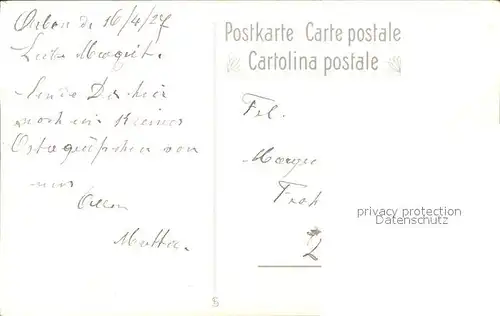 Arbon de 16/4/27
Liebe Margrit.
Sende Dir hier
noch ein kleines
Ostergrüsschen von
uns
Allen
Martha.
Postkarte Carte postale
Cartolina postale
Frl.
privacy protection
Datenschutz